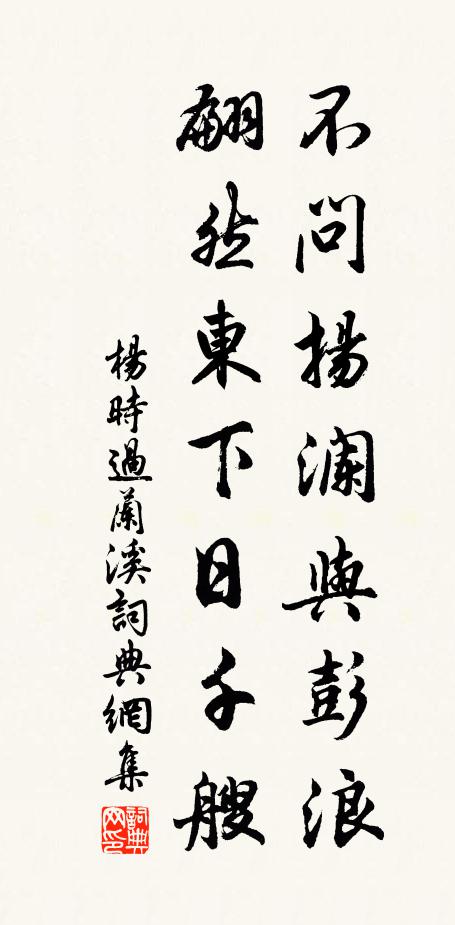 不問揚瀾與彭浪
翩然東下日千艘
楊時過蘭溪詞典網集
詞典網印